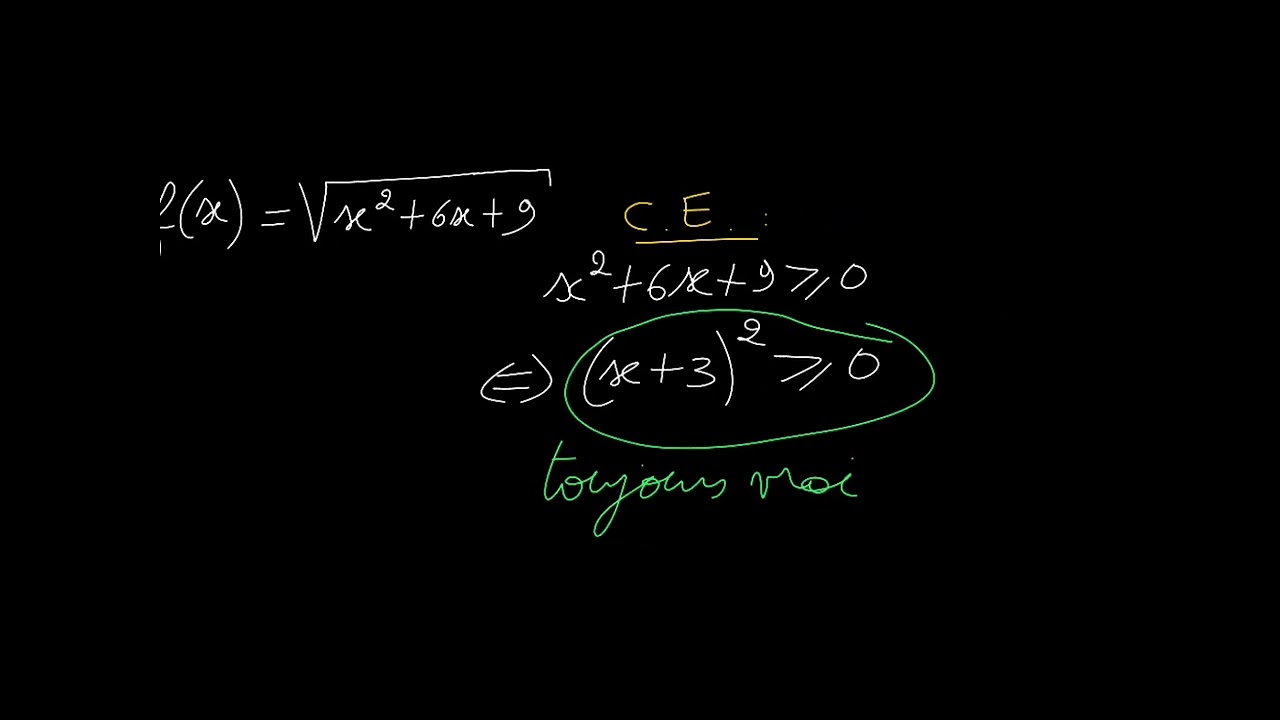 f(x) = √(x²+6x+9)
C.E. :
x²+6x+9 ⩾ 0
⇔ (x+3)² ⩾ 0
toujours vrai